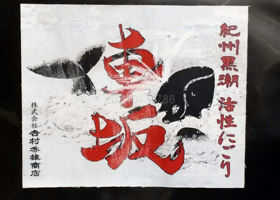 紀州黒潮 活性にごり
車坂
株式会社吉村秀雄商店